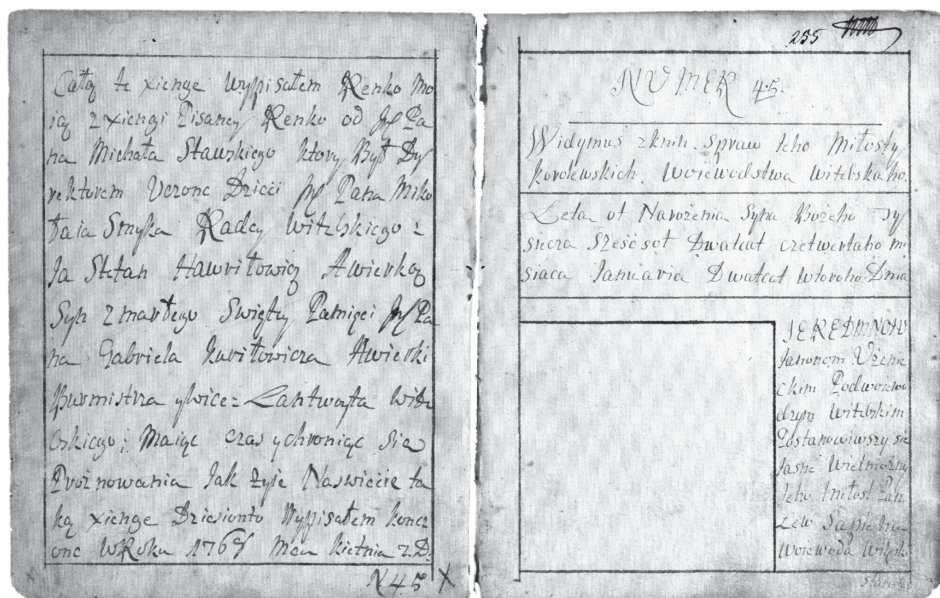 Całą tę xięngę Wypisałem Renko Mo
ią z xięngi Pisaney Renko od JP Pa
na Michała Stawskiego ktory Był Dy
rektorem Uczonc Dzieci JP Pana Miko
łaia Smyka Radcy witebskiego z
Ja Stefan Hawriłowicz Awierką
Syn zmarłego Swiętey Pamięci JP Pa
na Gabriela Hawriłowicza Awierki
Burmistrza ywice= Lantwoyta witb
skiego; Maiąc czas ychroniąc sia
Prożnowania Jak żyie Naswiecie ta
ką xięngę Dziesionto Wypisałem koncz
onc WRoku 1768 Mca kietnia 2. D.
N 45 X
255
NUMER 45.
Widymus zknih spraw Jeho Miłosty
korolewskich Woiewodstwa witebskaho.
Leta ot Narożenia Syna Bożeho Ty
siecza szesc sot Dwatcat czetwertaho m
siaca Januaria Dwatcat wtoroho Dnia
Janonom
ckim Podwoiewo
drym Witebskim
Postanowiwszy się
Jasne Wielmożny
Jeho miłost Pan
Lew Sapieha
Woiewoda Wilenski